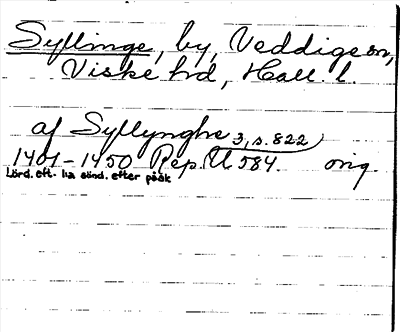 Syllinge, by, Veddige sn,
Viske hd, Hall. l.
af Syllynghe 3, s. 822
1401-1450 Rep. II 584. orig
Lörd. eft. 1:a sönd. efter påsk